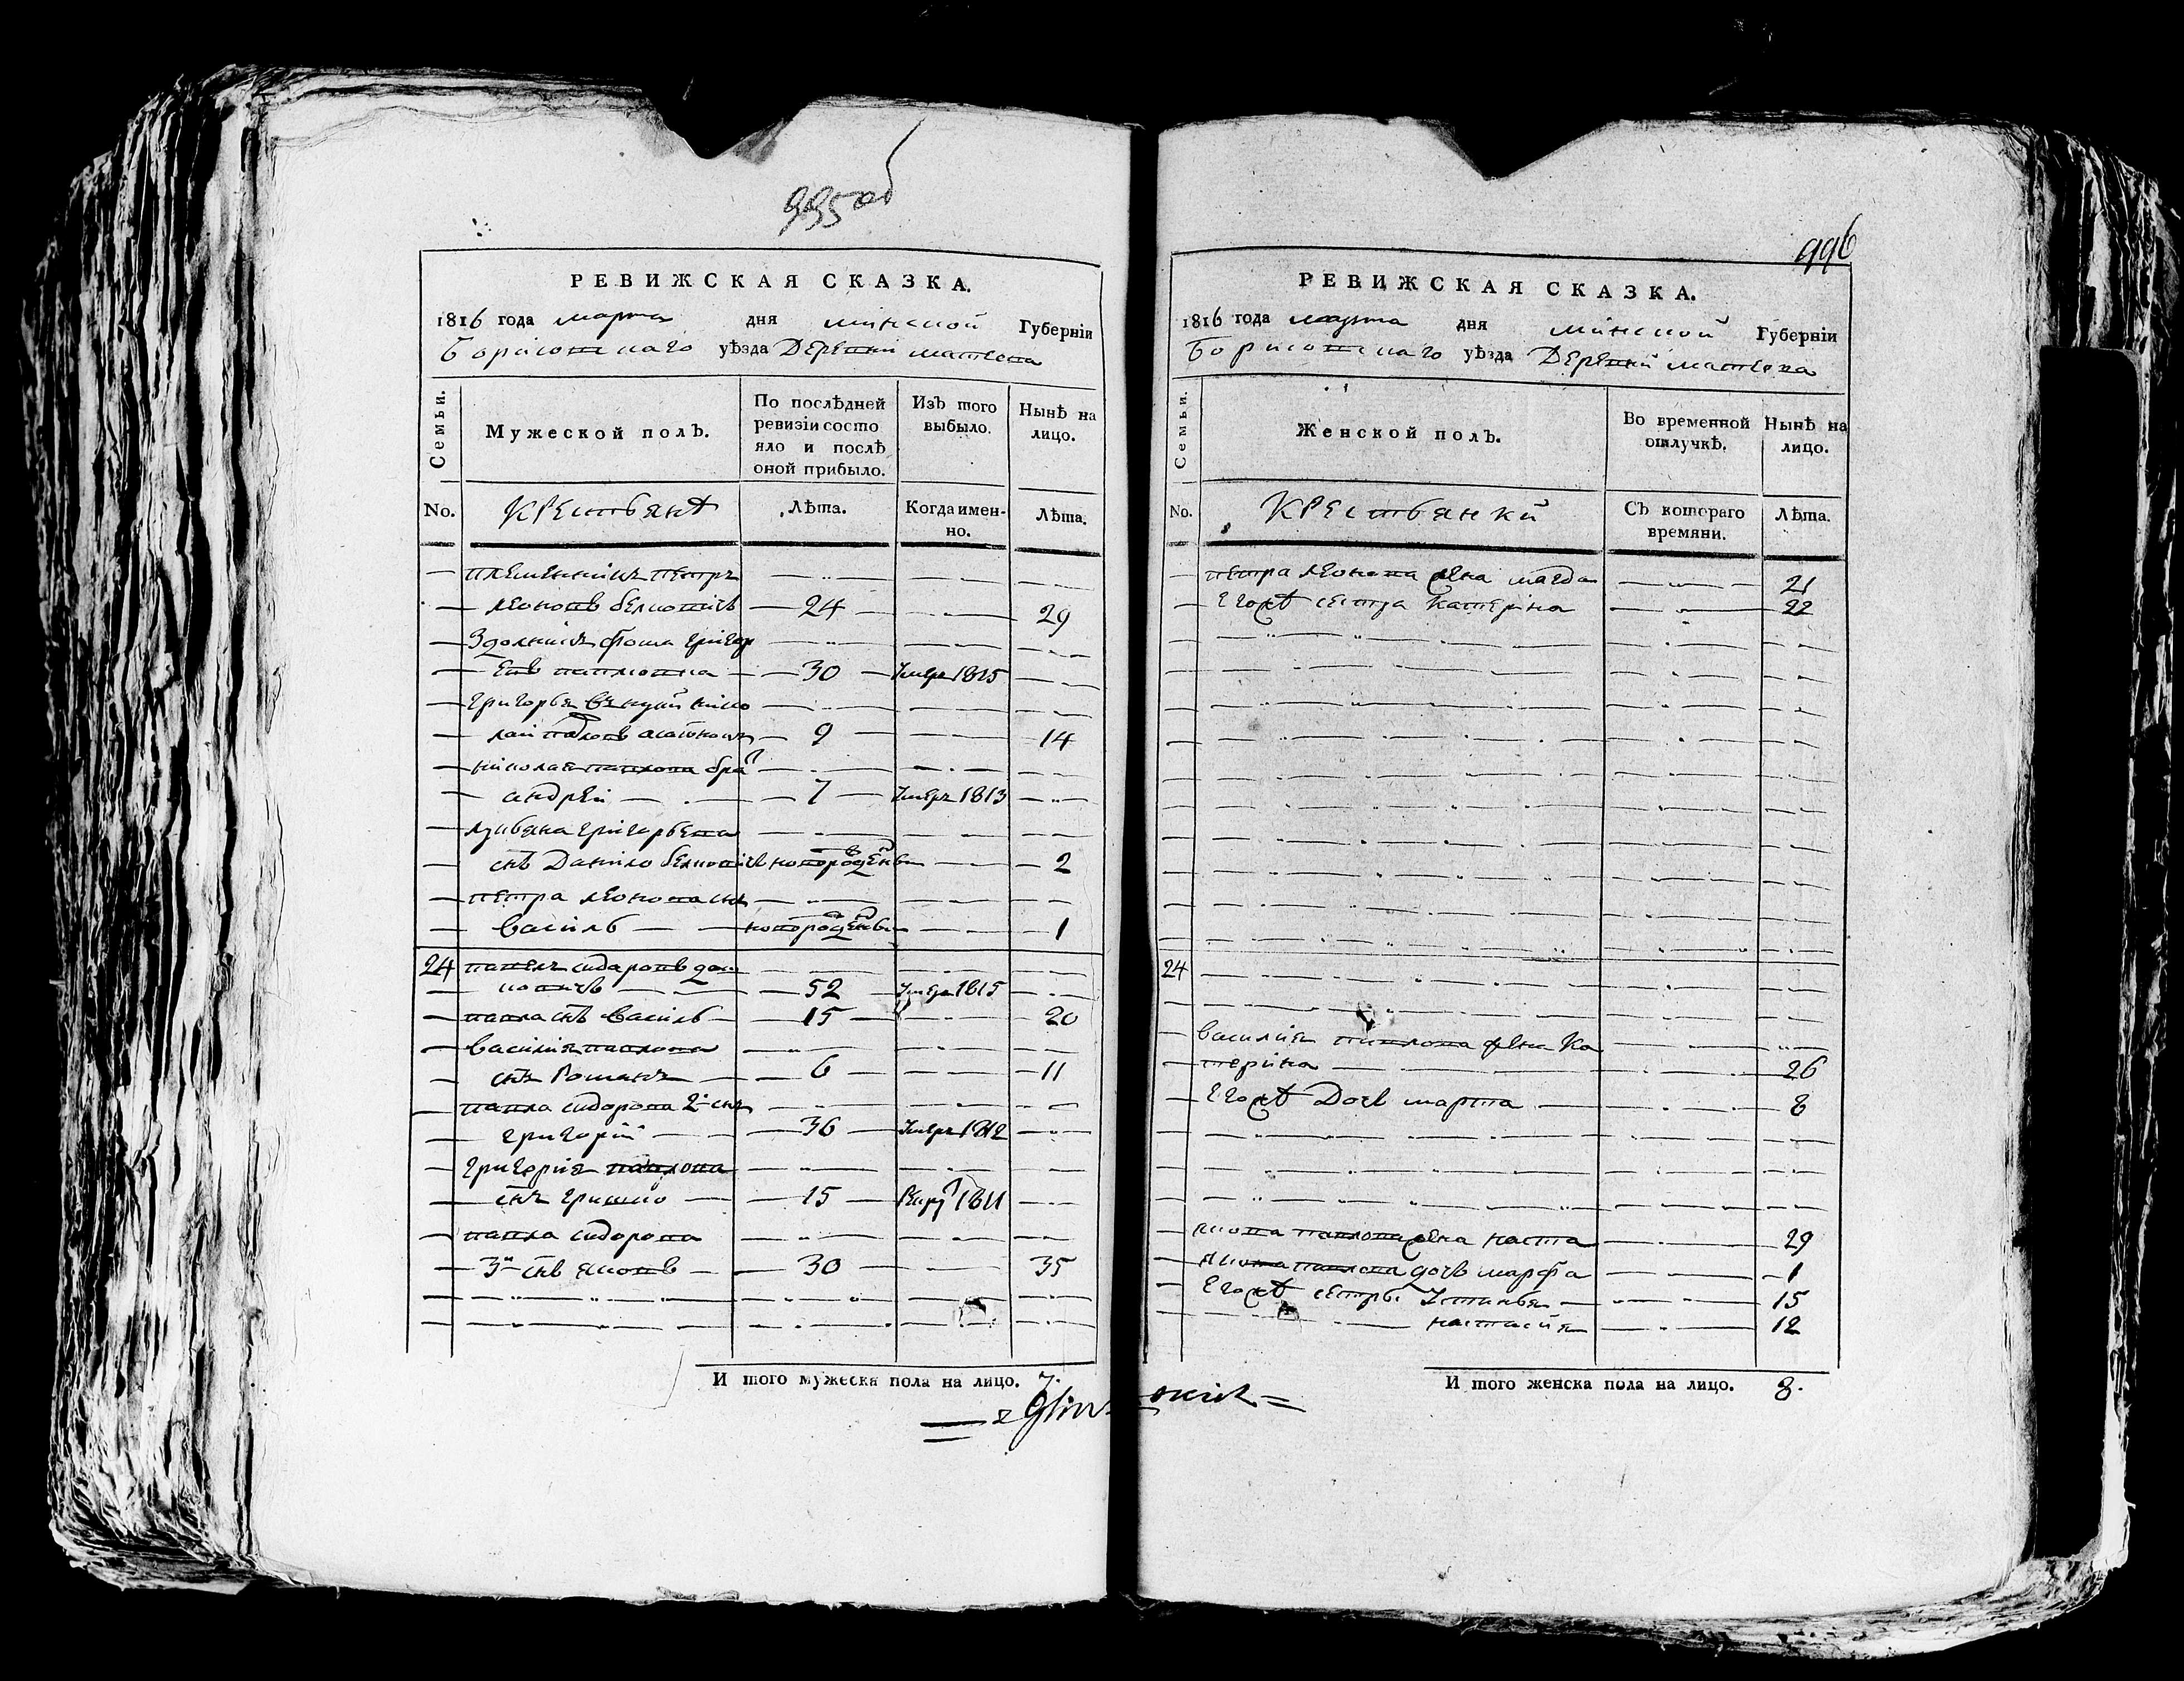 995 об
РЕВИЖСКАЯ СКАЗКА.
1816 года марта дня минской Губерніи
Борисовскаго уѣзда Деревни
Семьи.
Мужеской полъ.
По послѣдней ревизіи состо
яло и послѣ
оной прибыло.
Изъ того выбыло.
Нынѣ на лицо.
No. Крестьянѣ Лѣта. Когда имен-
но. Лѣта.
племенникъ петръ
леоновъ 24 29
30 1815
9 14
николая павлова бра
андрей 7 умеръ 1813
григорьева
снъ Данило новорожденъ 2
петра леонова снъ
василь новорожденъ 1
24 павелъ сидоровъ
52 умеръ 1815
павла снъ василь 15 20
василия павлова
снъ романъ 6 11
павла сидорова 2й снъ
григорий 36 умеръ 1812
григория павлова
снъ гришко 15 1811
павла сидорова
3й снъ яковъ 30 35
И того мужеска пола на лицо. 7.
996
РЕВИЖСКАЯ СКАЗКА.
1816 года марта дня минской Губерніи
Борисовскаго уѣзда Деревни
Семьи.
Женской полъ.
Во временной отлучкѣ.
Нынѣ на лицо.
No. Крестьянки Съ котораго
времяни. Лѣта.
петра леонова жена магда 21
Егожѣ сестра катерина 22
24
василия павлова жена ка
терина 26
Егожѣ дочь марта 8
павлова жена наста 29
павлова дочь марфа 1
Егожѣ сестры Устинья 15
настасия 12
И того женска пола на лицо. 8.